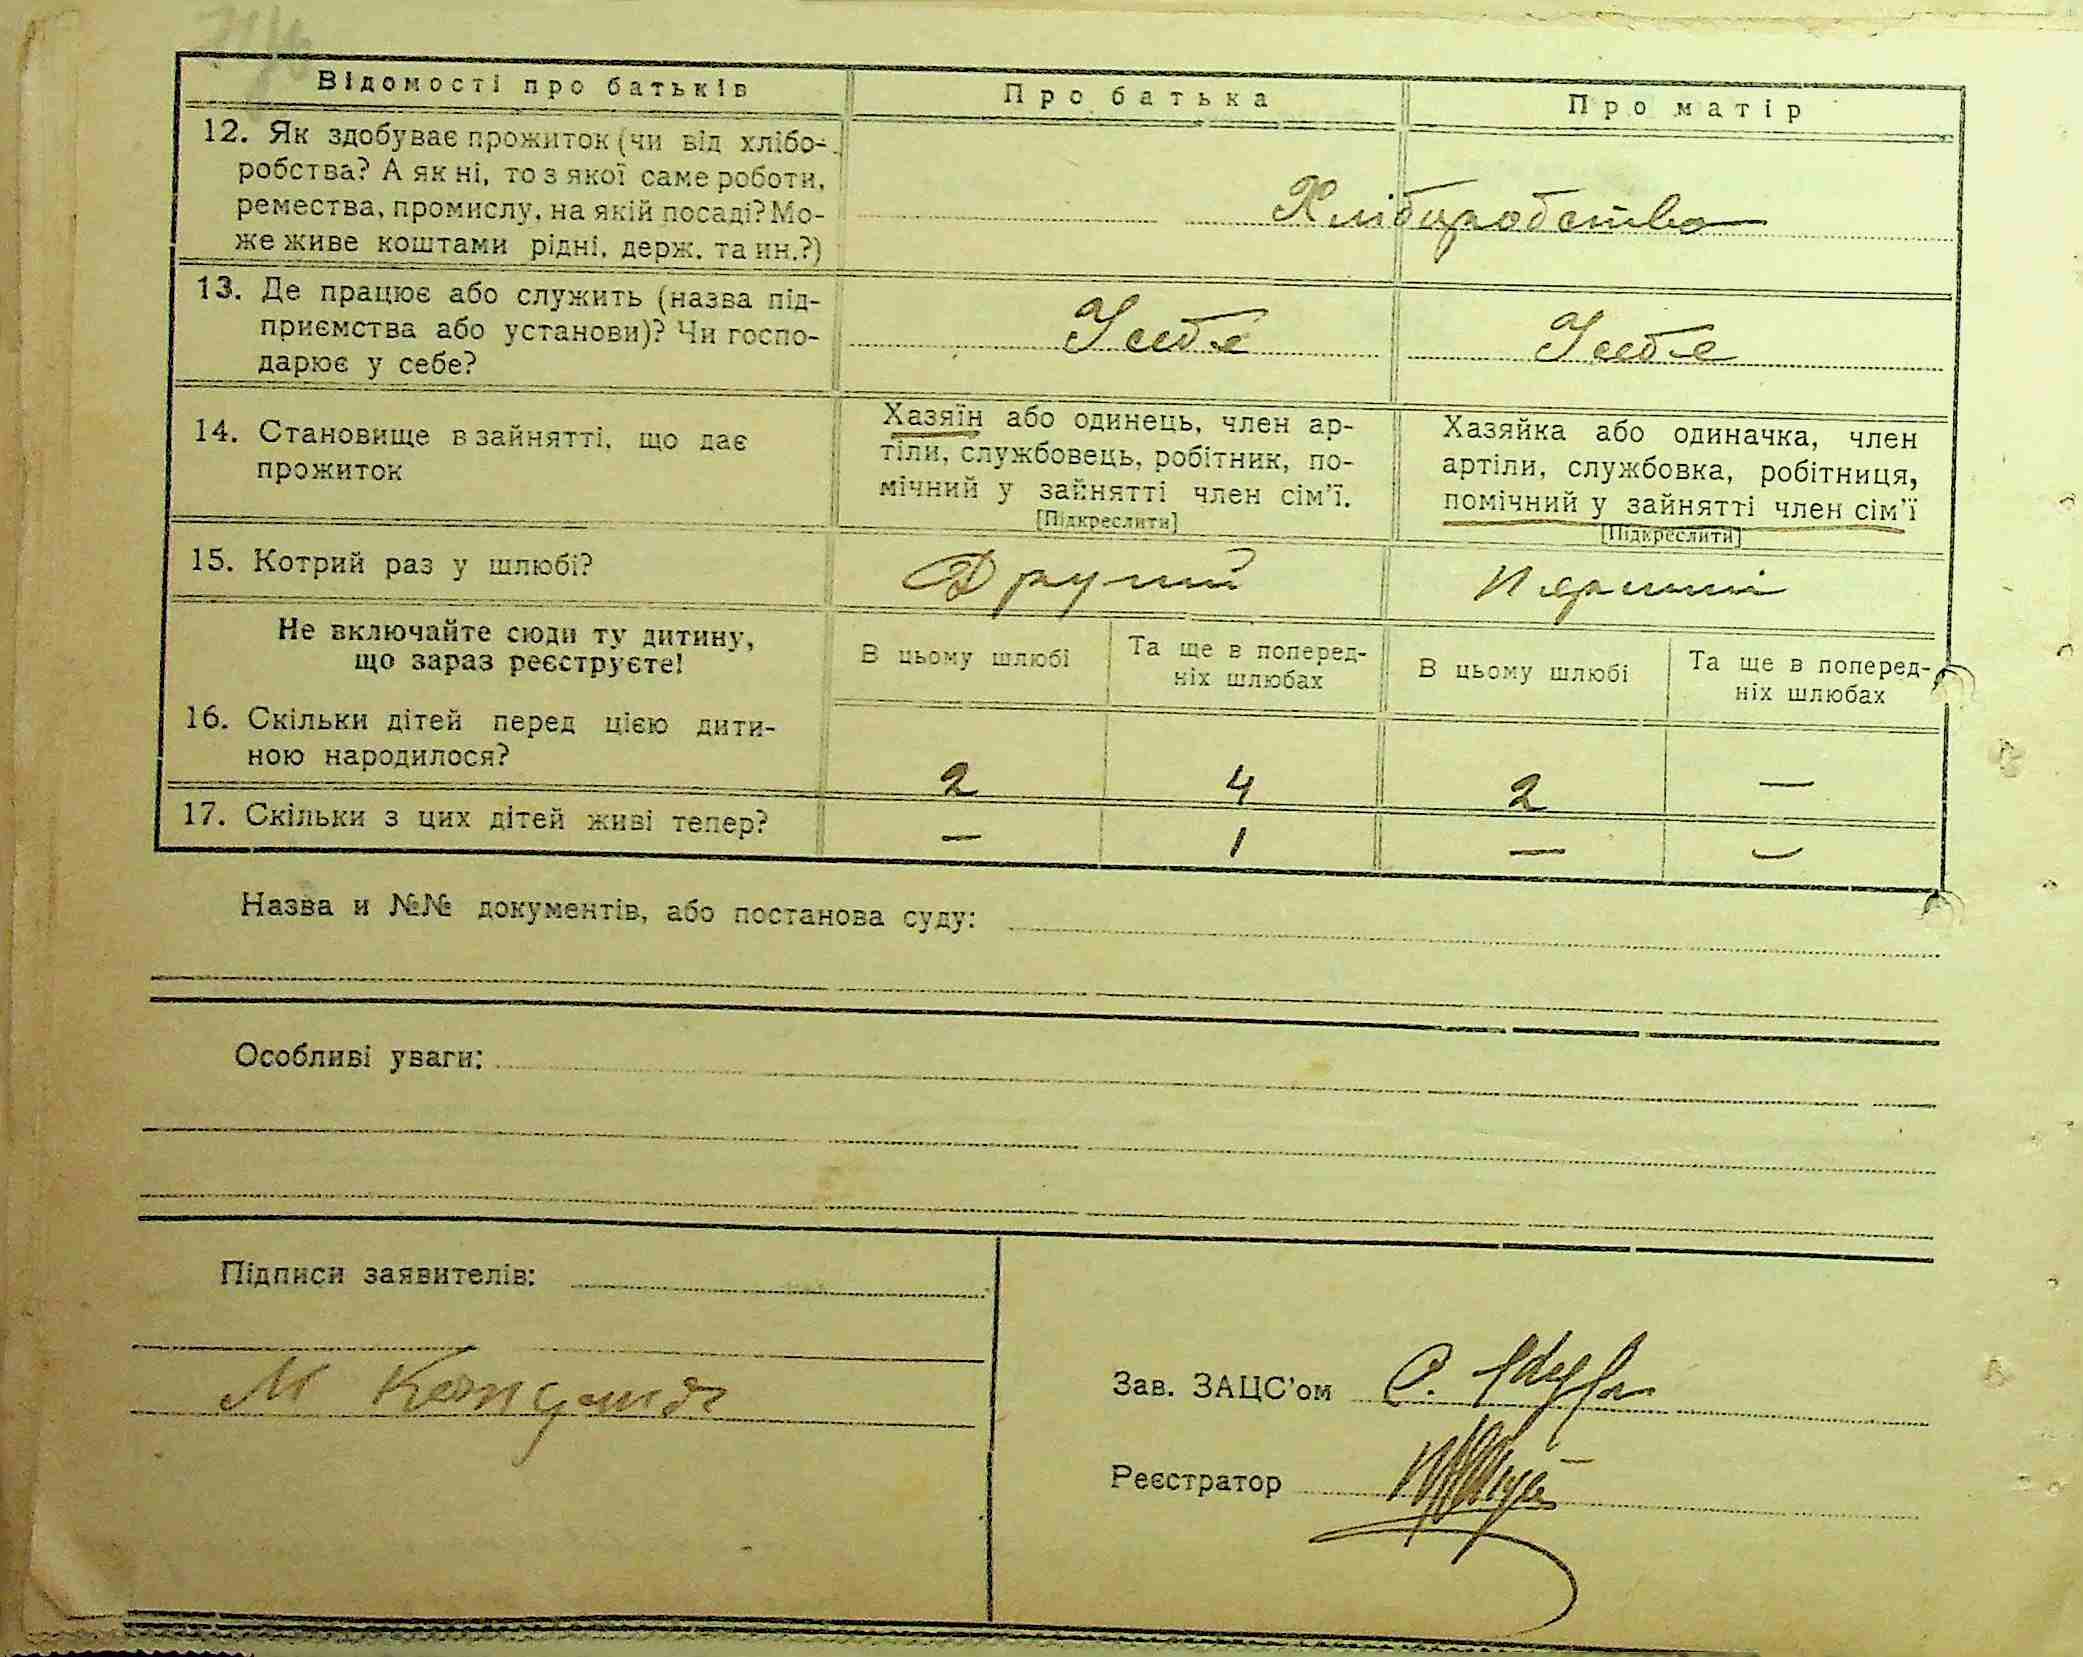 Відомості про батьків
Про батька
Про матір
12. Як здобуває прожиток (чи від хлібо-
робства? А як ні, то з якої саме роботи,
ремества, промислу, на якій посаді? Мо-
же живе коштами рідні, держ. та ин.?)
Хліборобство
13. Де працює або служить (назва під-
приємства або установи)? Чи госпо-
дарює у себе?
У себе
У себе
14. Становище в зайнятті, що дає
прожиток
Хазяїн або одинець, член ар-
тіли, службовець, робітник, по-
мічний у зайнятті член сім'ї.
[Підкреслити]
Хазяйка або одиначка, член
артіли, службовка, робітниця,
помічний у зайнятті член сім'ї
[Підкреслити]
15. Котрий раз у шлюбі?
Другий
Перший
Не включайте сюди ту дитину,
що зараз реєструєте!
В цьому шлюбі
Та ще в поперед-
ніх шлюбах
В цьому шлюбі
Та ще в поперед-
ніх шлюбах
16. Скільки дітей перед цією дити-
ною народилося?
2
4
2
—
17. Скільки з цих дітей живі тепер?
—
1
—
—
Назва и №№ документів, або постанова суду:
Особливі уваги:
Підписи заявителів:
М
Зав. ЗАЦС'ом С.
Реєстратор